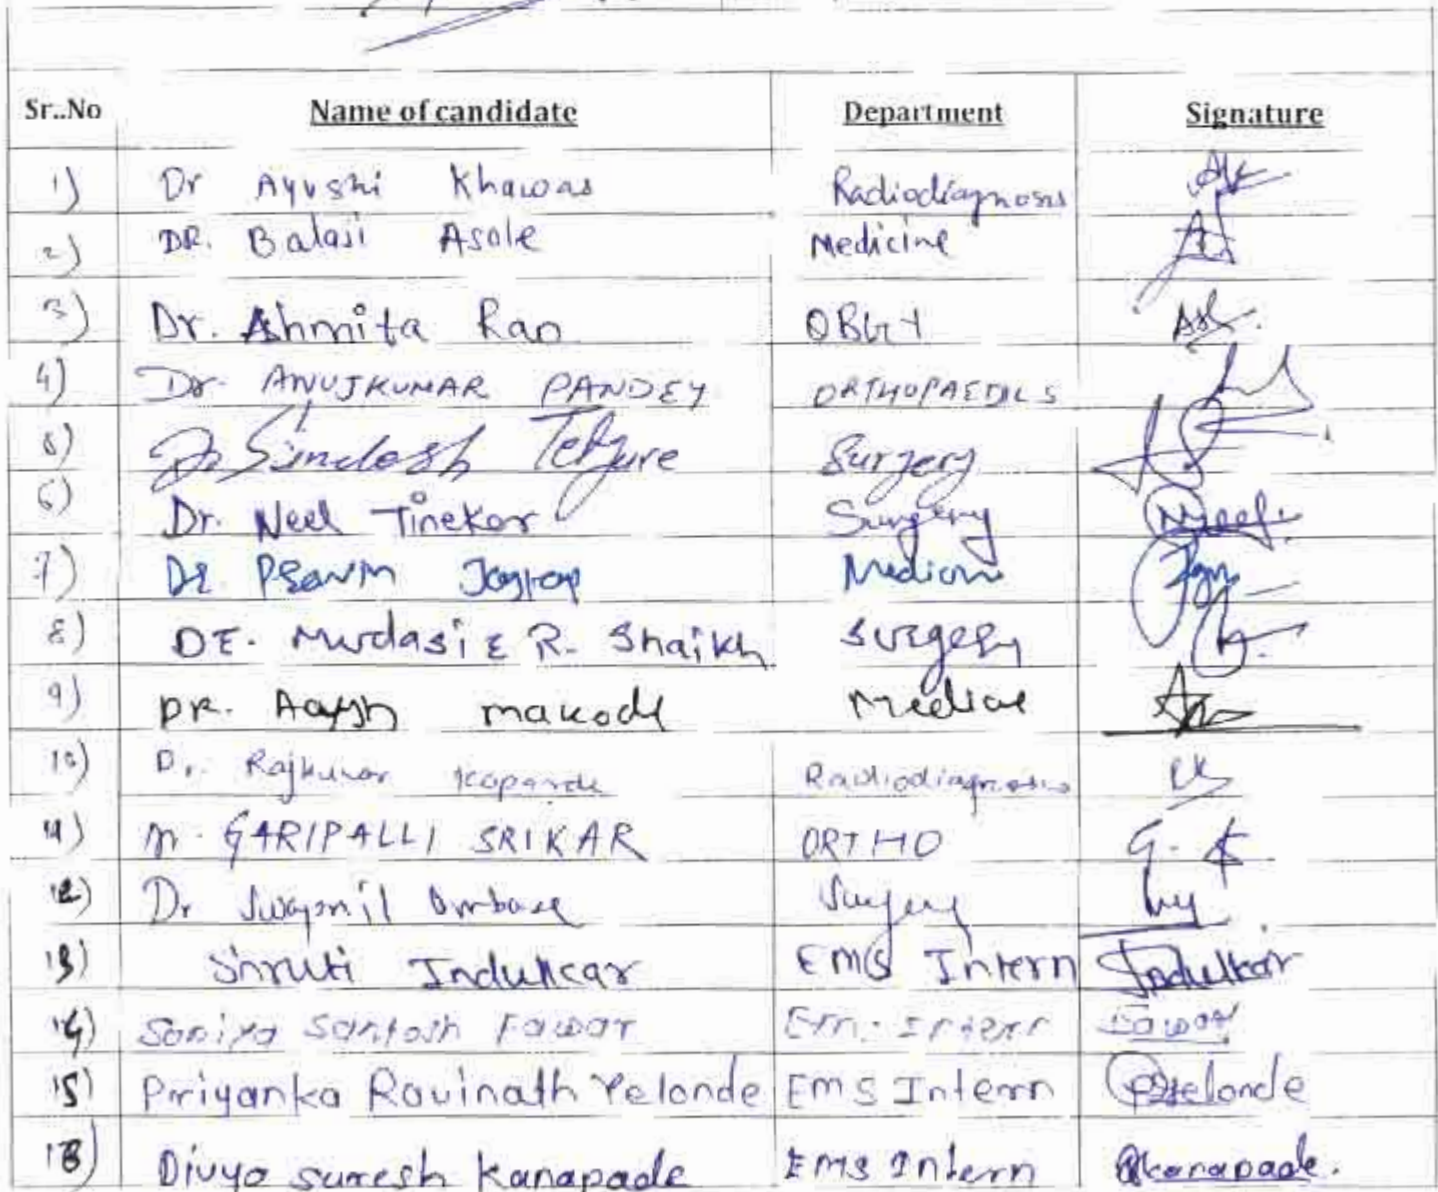 Sr..No Name of candidate Department Signature
1) Dr Ayushi Khawas Radiodiagnosis
2) DR. Balaji Asole Medicine
3) Dr. Ahmita Rao OBGY
4) Dr. ANUJKUMAR PANDEY ORTHOPAEDICS
5) Dr Surgery
6) Dr. Neel Tinekar Surgery Neel.
7) Dr Medicin
8) DR. Mudasir R. Shaikh Surgery
9) DR. Aaysh makode
10) Dr. Rajkumar Radiodiagnosis
11) GARIPALLI SRIKAR ORTHO G.
12) Dr Swapnil Surgery
13) Shruti Indulkar EMS Intern Indulkar
14) Saniya Santosh Pawar Em. Intern Pawar
15) Priyanka Ravinath Yelonde EMS Intern PYelonde
16) Divya suresh Kanapade EMS Intern Kanapade.